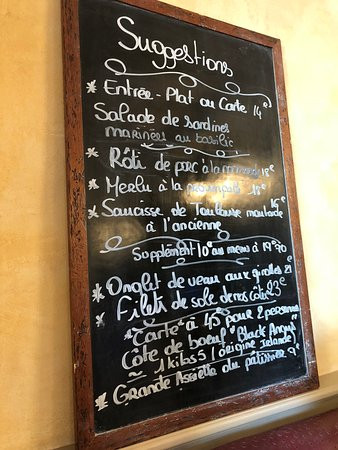 Suggestions
* Entrée - Plat ou Carte 14€
Salade de sardines
marinées au basilic
* Rôti de porc à la 18€
* Merlu à la provençale 18€
* Saucisse de Toulouse moutarde 15€
à l'ancienne
Supplément 10€ au menu à 19€90
* Onglet de veau aux girolles 21€
* Filets de sole de nos côtes 23€
* Carte à 45 pour 2 personnes
Côte de boeuf "Black Angus"
1 kilo 55 / origine Irlande
* Grande Assiette du pâtissier 9€